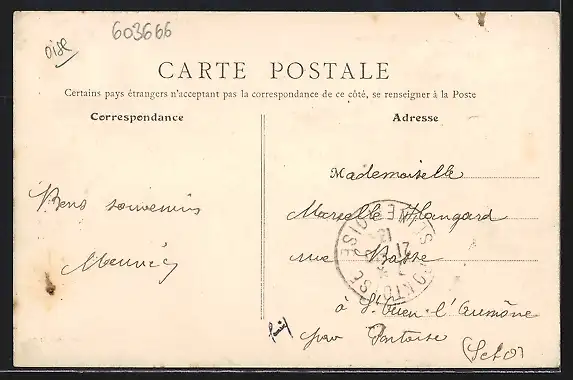 Oise
603666
CARTE POSTALE
Certains pays étrangers n'acceptant pas la correspondance de ce côté, se renseigner à la Poste
Correspondance
Adresse
Mademoiselle
Bons souvenirs
Marcelle Hangard
rue Basse
à St Ouen-l'Aumône
par Pontoise
(S et O)